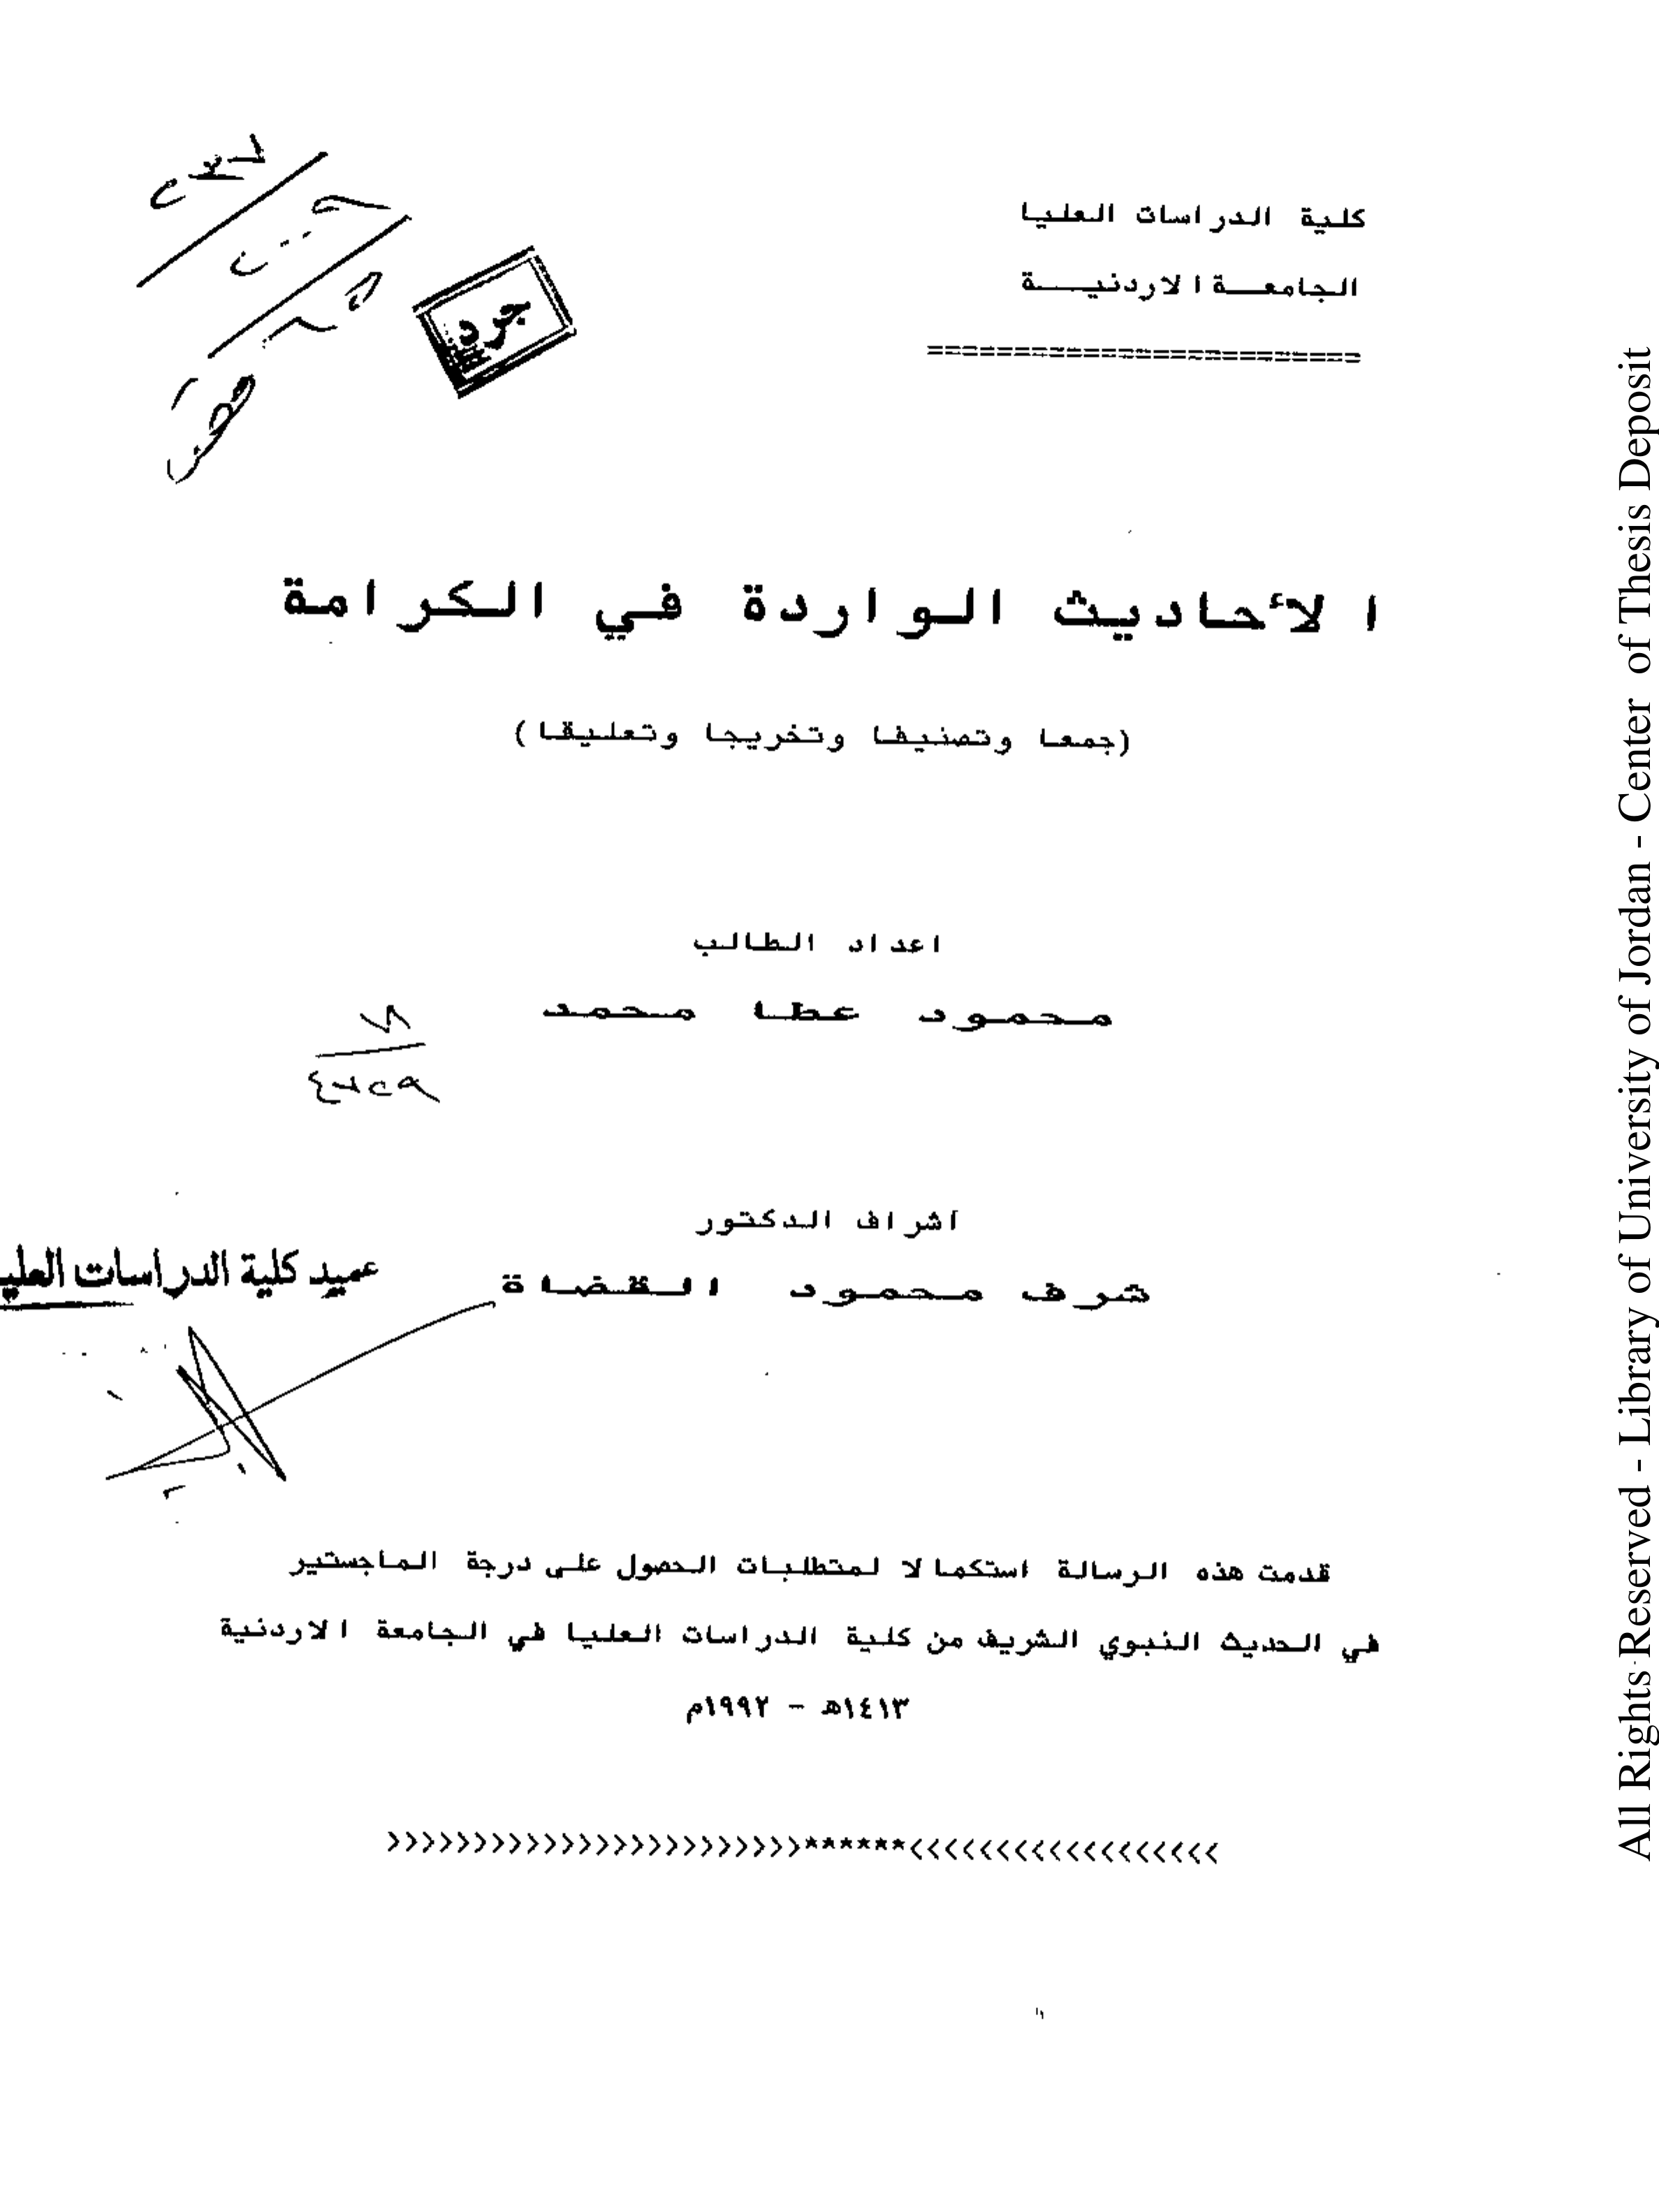 كلية الدراسات العليا
الجامعـــة الاردنيـــة
=========================
جرد
٢٣٧
الأحاديث الواردة في الكرامة
(جمعا وتصنيفا وتخريجا وتعليقا)
اعداد الطالب
محمود عطا محمد
اشراف الدكتور
شرف محمود القضاة
عميد كلية الدراسات العليا
قدمت هذه الرسالة استكمالا لمتطلبات الحصول على درجة الماجستير
في الحديث النبوي الشريف من كلية الدراسات العليا في الجامعة الاردنية
١٤١٣هـ - ١٩٩٢م
All Rights Reserved - Library of University of Jordan - Center of Thesis Deposit